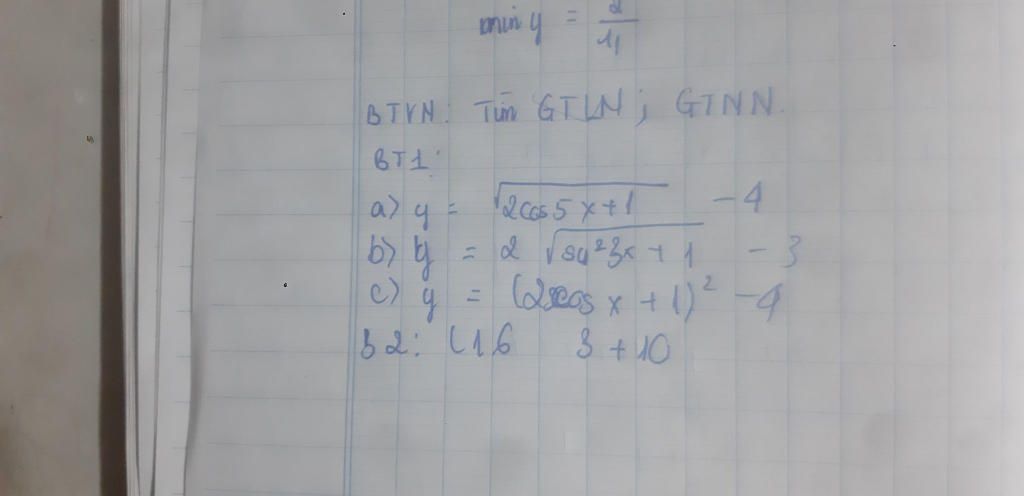 min y = 2/11
BTVN: Tìm GTLN; GTNN.
BT1:
a) y = √(2cos5x+1) - 4
b) y = 2 √(sin²3x + 1) - 3
c) y = (2cos x + 1)² - 4
B2: (16 3 + 10